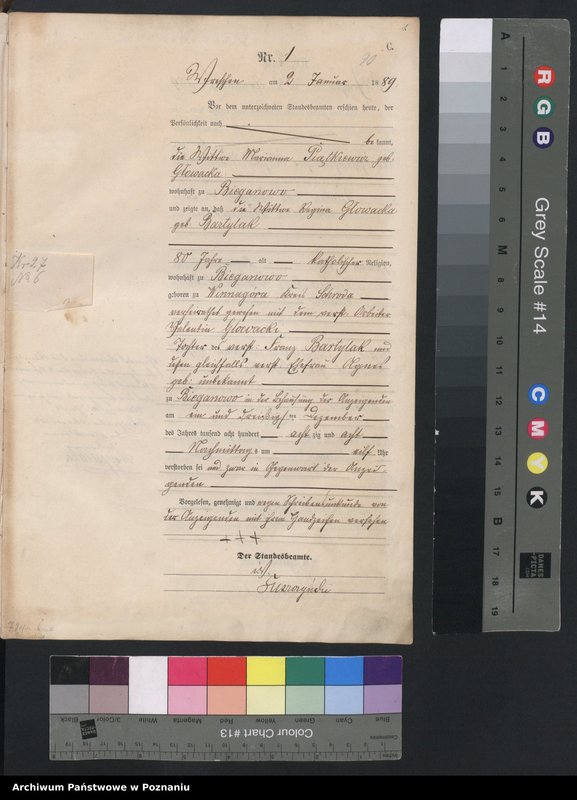 C.
Nr. 1
Wreschen am 2 Januar 1889
Vor dem unterzeichneten Standesbeamten erschien heute, der
Persönlichkeit nach
be kannt,
die Wittwe Marianna Piątkiewicz geb.
Głowacka
wohnhaft zu Bieganowo
und zeigte an, daß die Wittwe Regina Głowacka
geb. Bartylak
80 Jahre alt katholischer Religion,
wohnhaft zu Bieganowo
geboren zu Winnagóra Kreis Schroda
verheirathet gewesen mit dem verst. Arbeiter
Valentin Głowacki
Tochter des verst. Franz Bartylak und
dessen gleichfalls verst. Ehefrau Agnes
geb. unbekannt
zu Bieganowo in der Behausung der Anzeigenden
am ein und dreißigsten Dezember
des Jahres tausend acht hundert acht zig und acht
Nachmittags um elf Uhr
verstorben sei und zwar in Gegenwart der Anzei-
genden
Vorgelesen, genehmigt und wegen Schreibensunkunde von
der Anzeigenden mit ihrem Handzeichen versehen
+++
Der Standesbeamte.
Nr 27
No 6
A 1 2 3 4 5 6 M 8 9 10 11 12 13 14 15 B 17 18 19
R G B
Grey Scale #14
C M Y K
DANES PICTA
Blue Cyan Green Yellow Red Magenta White 3/Color Black
Colour Chart #13
Archiwum Państwowe w Poznaniu